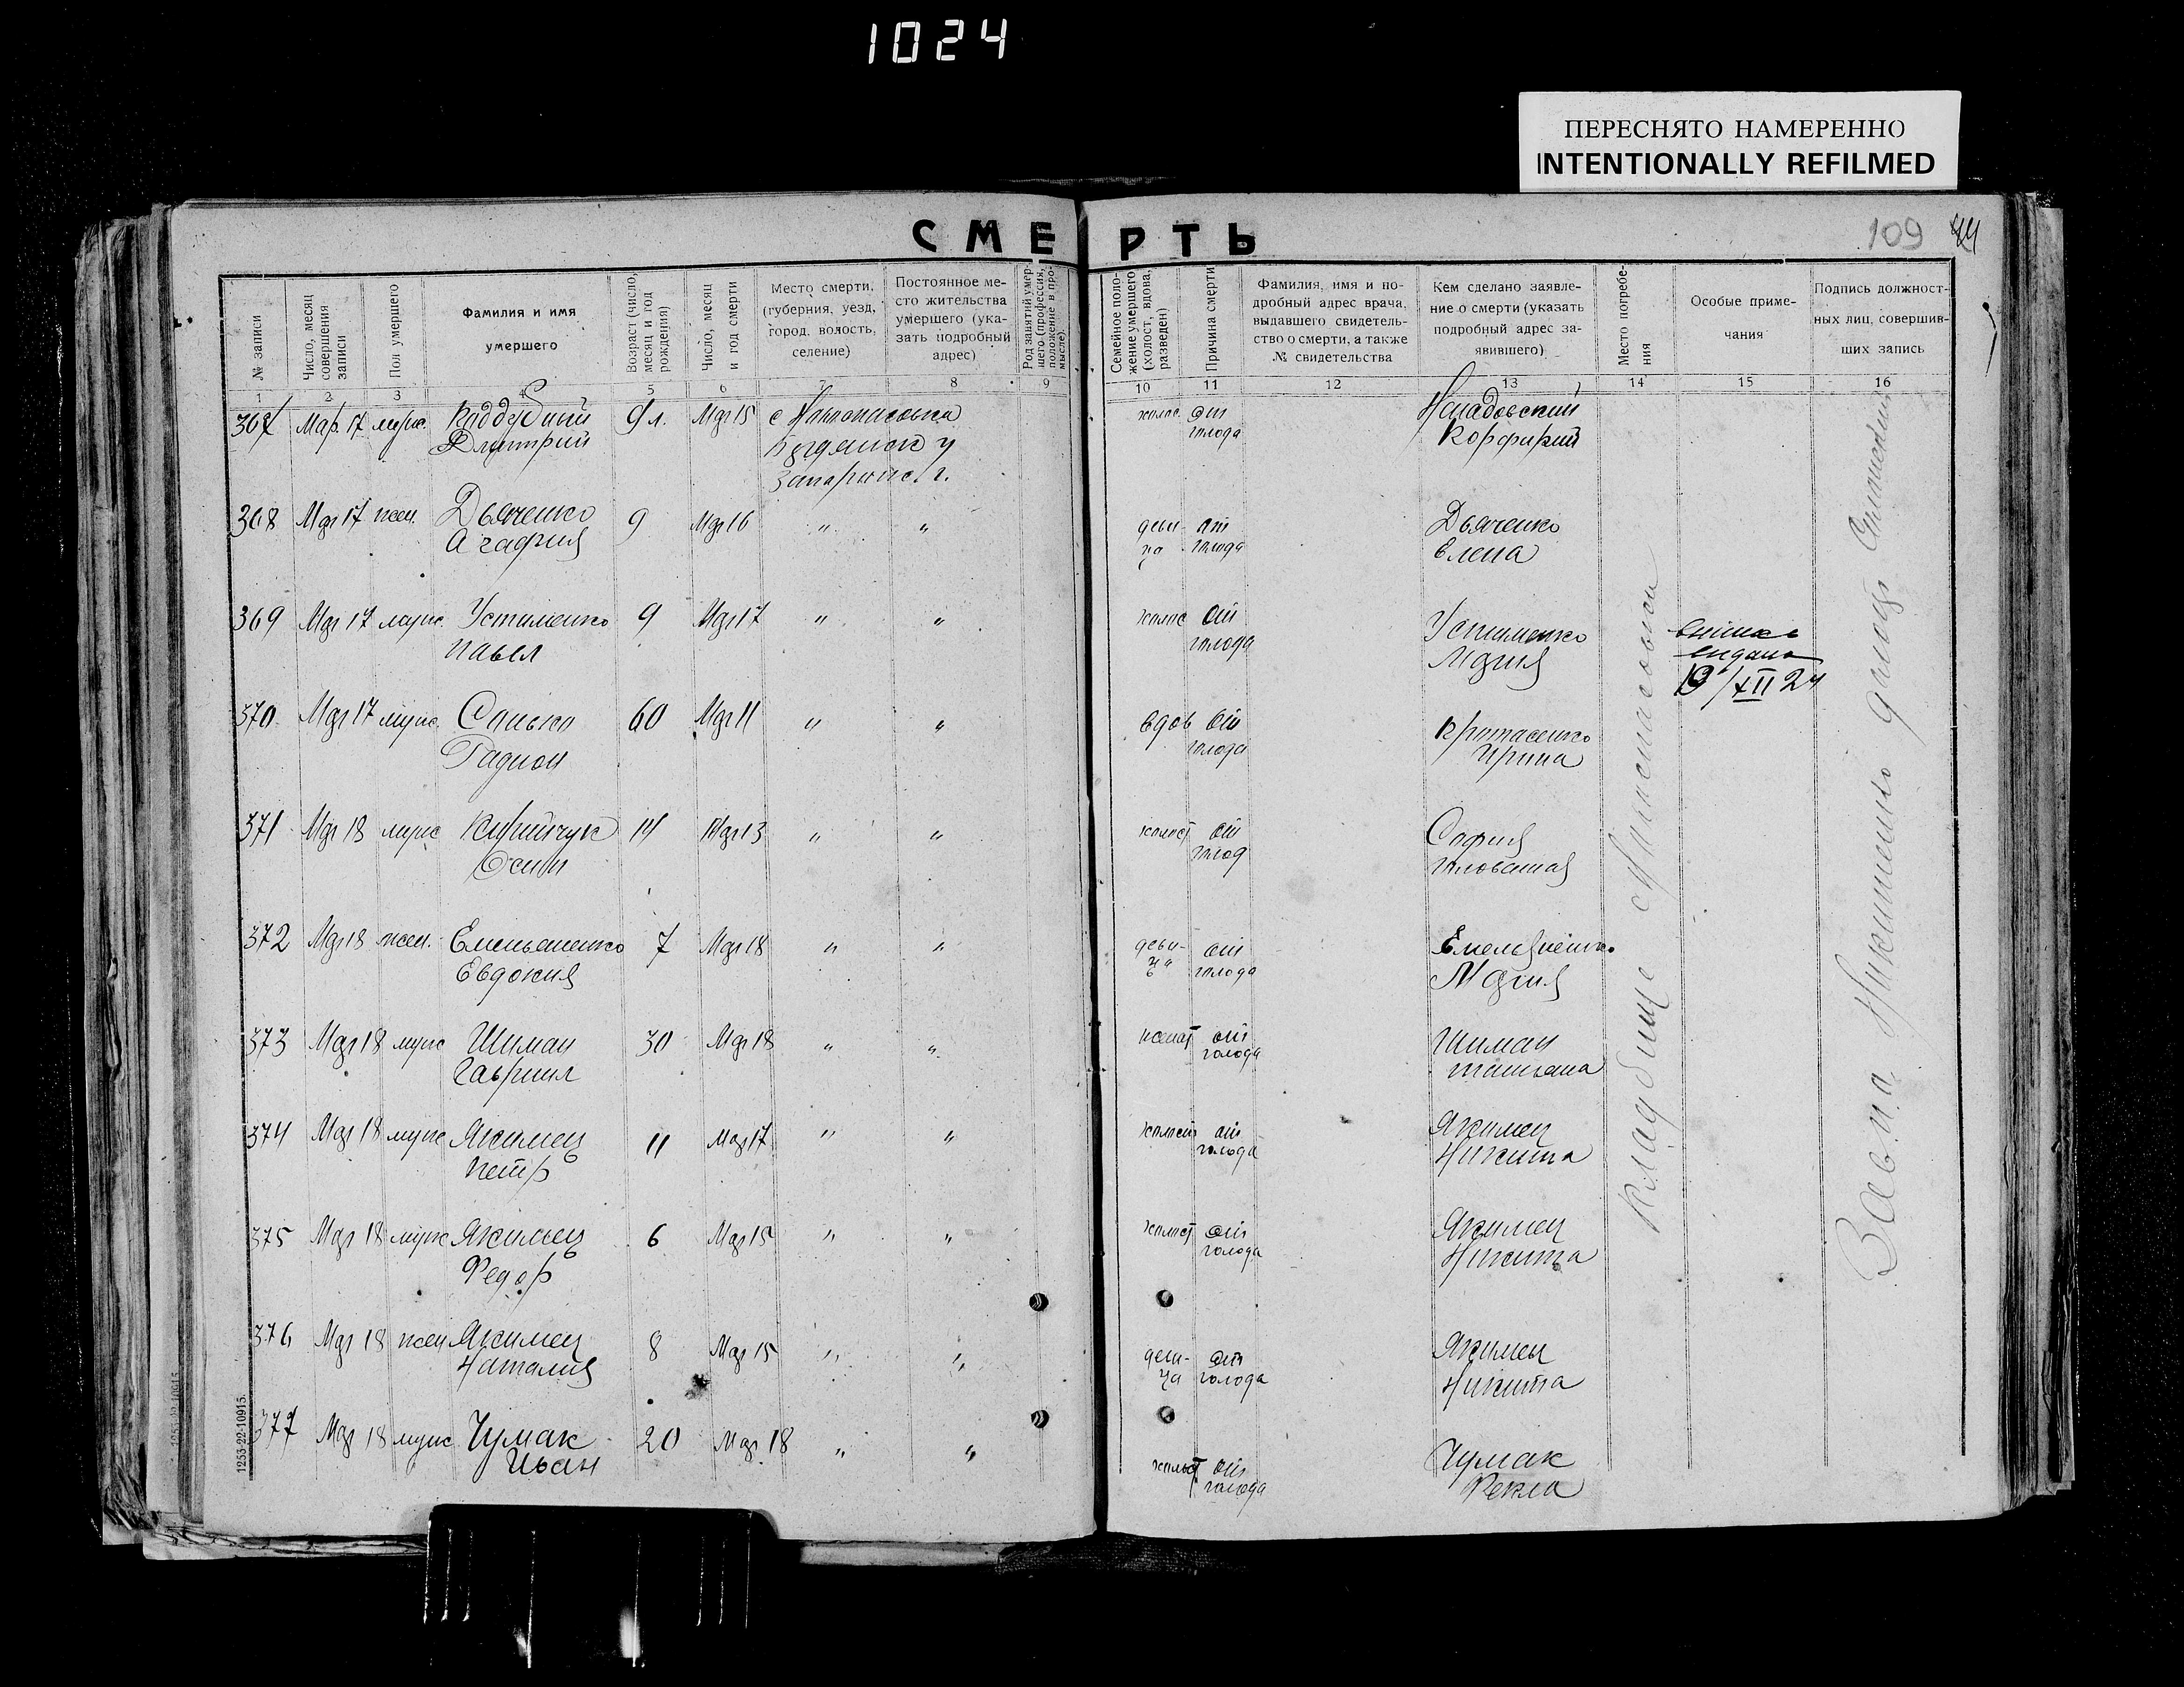 1024
ПЕРЕСНЯТО НАМЕРЕННО
INTENTIONALLY REFILMED
СМЕРТЬ
109
№ записи
Число, месяц совершения записи
Пол умершего
Фамилия и имя умершего
Возраст (число, месяц и год рождения)
Число, месяц и год смерти
Место смерти, (губерния, уезд, город, волость, селение)
Постоянное место жительства умершего (указать подробный адрес)
Род занятий умершего (профессия, положение в промысле)
Семейное положение умершего (холост, вдова, разведен)
Причина смерти
Фамилия, имя и подробный адрес врача, выдавшего свидетельство о смерти, а также № свидетельства
Кем сделано заявление о смерти (указать подробный адрес заявившего)
Место погребения
Особые примечания
Подпись должностных лиц, совершивших запись
1 2 3 4 5 6 7 8 9 10 11 12 13 14 15 16
367 Мар. 17 муж. Поддубный 9 л. Мар 15 от
Дмитрий голода
308 Мар 17 жен. Дьяченко 9 Мар 16 " " деви- от Дьяченко
Агафия ца голода Елена
369 Мар 17 муж. Устименко 9 Мар 17 " " от Устименко
Павел голода Мария
19/XII 24
370 Мар 17 муж. 60 Мар 11 " " вдов от
голода Ирина
371 Мар 18 муж 14 Мар 13 " " холост от София
Осип голод
372 Мар 18 жен. Емельяненко 7 Мар 18 " " деви- от Емельяненко
Евдокия ца голода Мария
373 Мар 18 муж Шиман 30 Мар 18 " " женат от Шиман
Гавриил голода Татьяна
374 Мар 18 муж Якимец 11 Мар 17 " " холост от Якимец
Петр голода Никита
375 Мар 18 муж Якимец 6 Мар 15 " " холост от Якимец
Федор голода Никита
376 Мар 18 жен Якимец 8 Мар 15 " " деви- от Якимец
Наталия ца голода Никита
377 Мар 18 муж Чумак 20 Мар 18 " " холост от Чумак
Иван голода Фекла
Кладбище
1253-22-10915